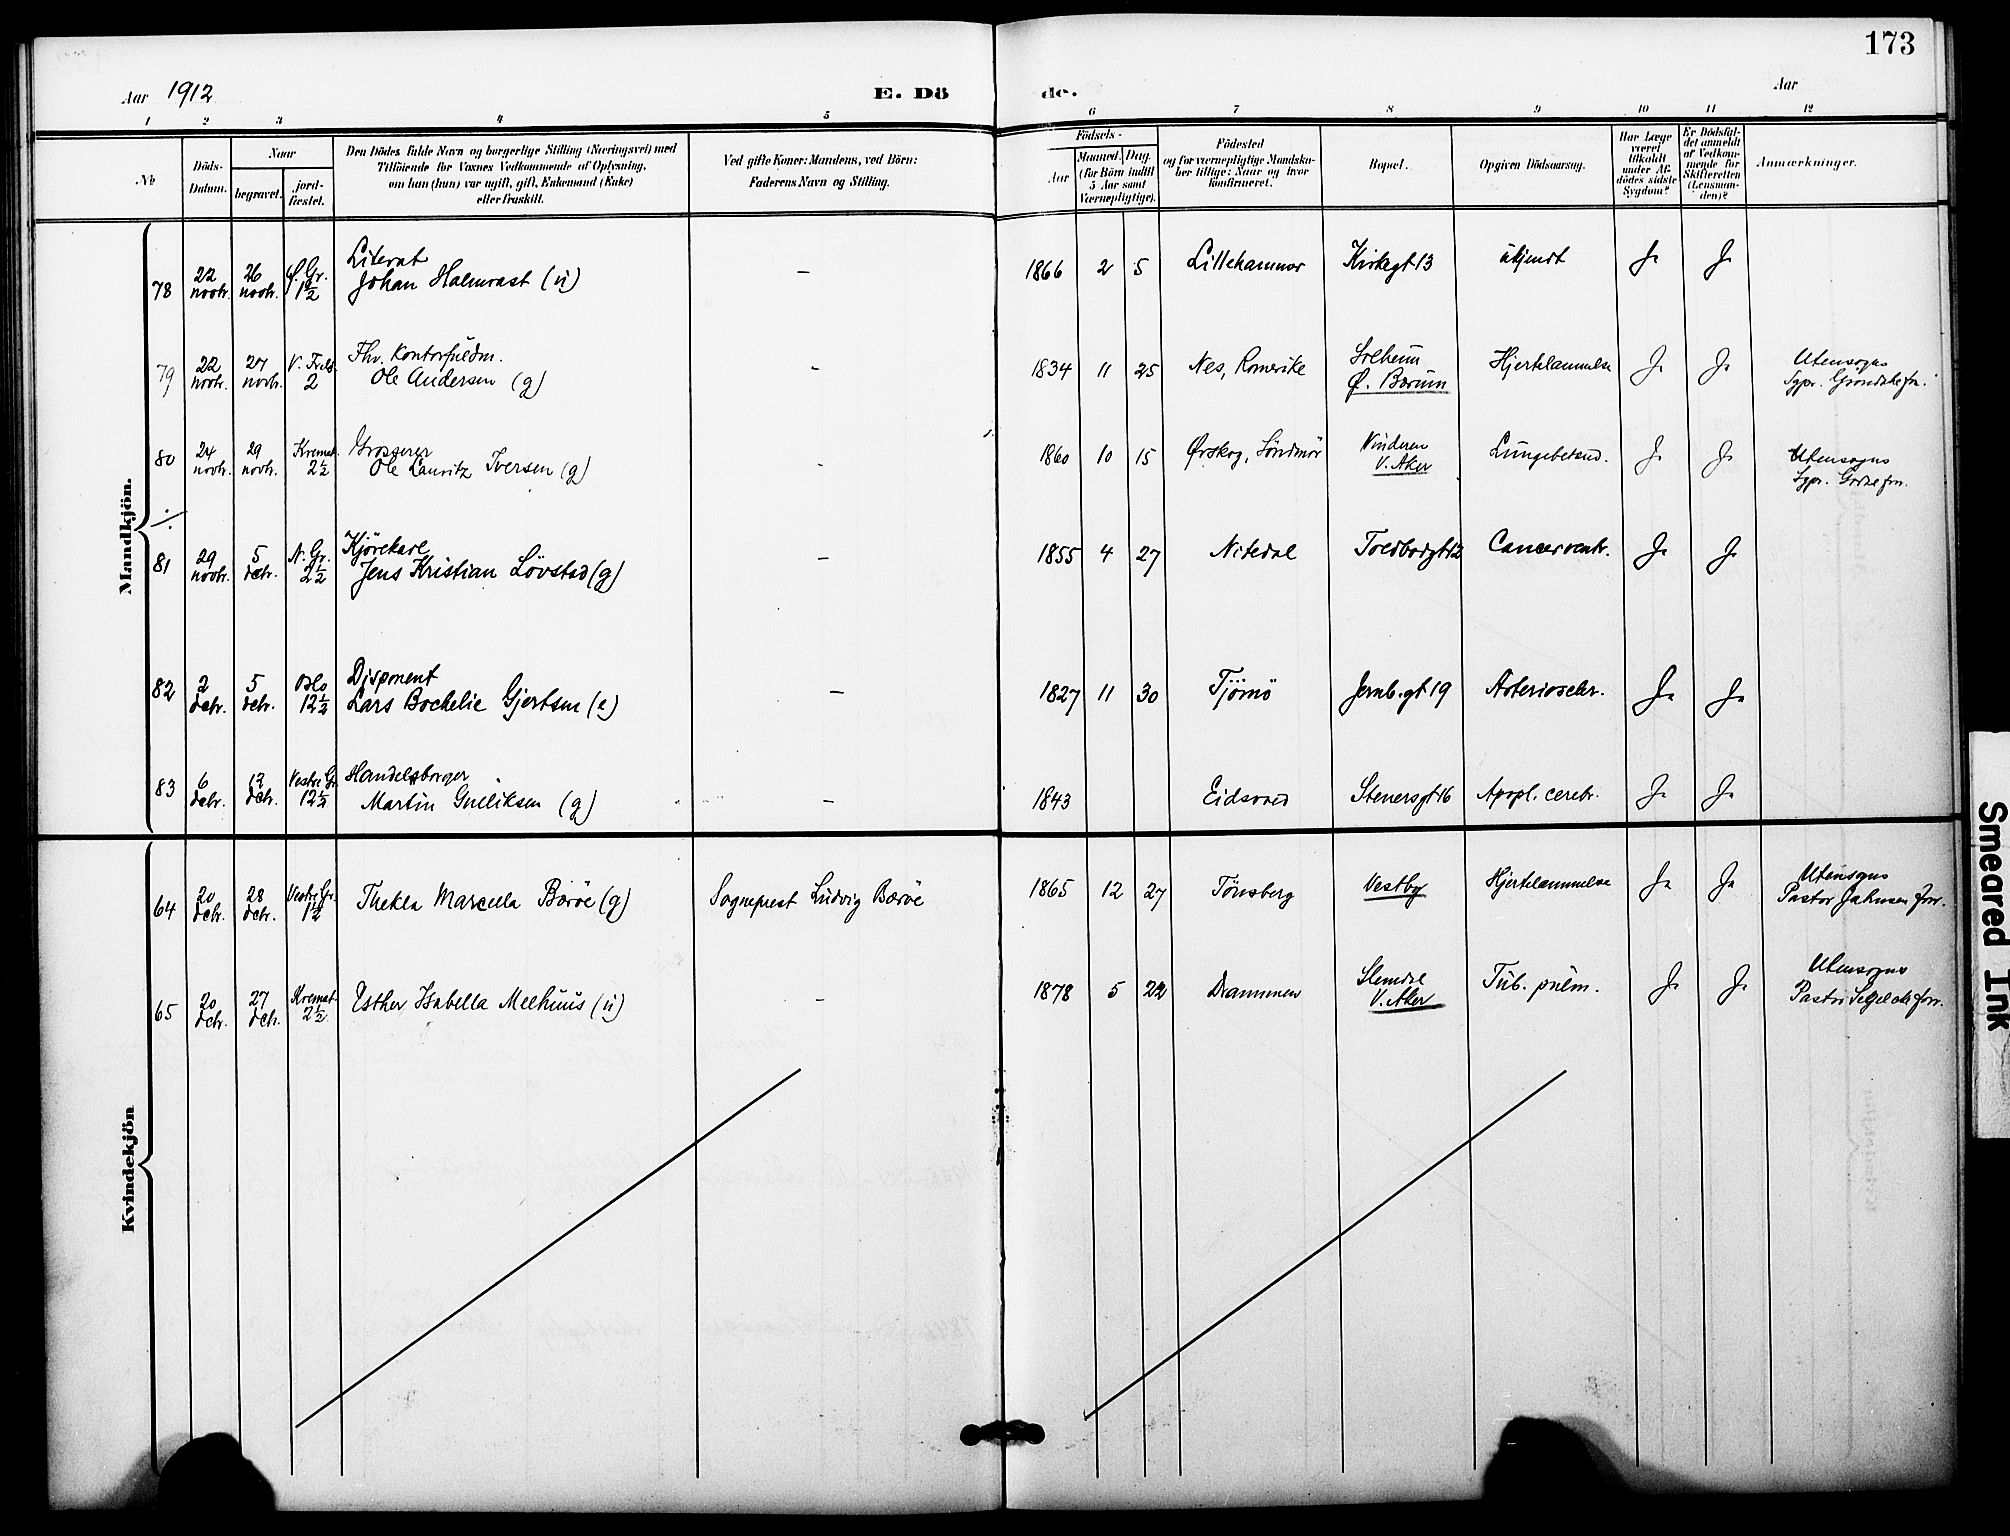 173
Aar 1912
E. Dö
de.
Aar
1 2 3 4 5 6 7 8 9 10 11 12
№
Döds-
Datum.
Naar
begravet.
jord-
fæstet.
Den Dödes fulde Navn og borgerlige Stilling (Næringsvei) med
Tilföiende for Voxnes Vedkommende af Oplysning,
om han (hun) var ugift, gift, Enkemand (Enke)
eller fraskilt.
Ved gifte Koner: Mandens, ved Börn:
Faderens Navn og Stilling.
Födsels-
Aar
Maaned. Dag.
(for Börn indtil
5 Aar samt
Værnepligtige).
Födested
og for værnepligtige Mandska-
ber tillige: Naar og hvor
konfirmeret.
Bopæl.
Opgiven Dödsaarsag.
Har Læge
været
tilkaldt
under Af-
dödes sidste
Sygdom?
Er Dödsfal-
det anmeldt
af Vedkom-
mende for
Skifteretten
(Lensman-
den)?
Anmærkninger.
Mandkjön.
Literat
78 22 novbr. 26 novbr. Ø. Gr. 1½ Johan Halmrast (u) — 1866 2 5 Lillehammer Kirkegt 13 ukjendt Ja Ja
Fhv. Kontorfuldm.
79 22 novbr. 27 novbr. V. Frels. 2 Ole Andersen (g) — 1834 11 25 Nes, Romerike Solheim Hjertelammelse Ja Ja Utensogns
Ø. Bærum
Grosserer
80 24 novbr. 29 novbr. Kremat. 2½ Ole Lauritz Iversen (g) — 1860 10 15 Ørskog, Söndmör Vinderen Lungebetænd. Ja Ja Utensogns
V. Aker
Kjörekarl
81 29 novbr. 5 decbr. N. Gr. 2½ Jens Kristian Lövstad (g) — 1855 4 27 Nitedal Toldbodgt 12 Cancer ventr. Ja Ja
Disponent
82 2 decbr. 5 decbr. Oslo 12½ Lars Bochelie Gjertsen (e) — 1827 11 30 Tjömö Jernb.gt 19 Arterioscler. Ja Ja
Handelsborger
83 6 decbr. 12 decbr. Vestre Gr. 12½ Martin Gulliksen (g) — 1843 Eidsvold Stenersgt 16 Apopl. cerebr. Ja Ja
Kvindekjön
64 20 decbr. 28 decbr. Vestre Gr. 1½ Thekla Marcella Barøe (g) Sogneprest Ludvig Barøe 1865 12 27 Tönsberg Vestby Hjertelammelse Ja Ja Utensogns
Pastor Jahnsen forr.
65 20 decbr. 27 decbr. Kremat. 2½ Esther Isabella Meelhuus (u) — 1878 5 22 Drammen Slemdal Tub. pulm. Ja Ja Utensogns
V. Aker
Pastor Selgelcke forr.
Smeared Ink